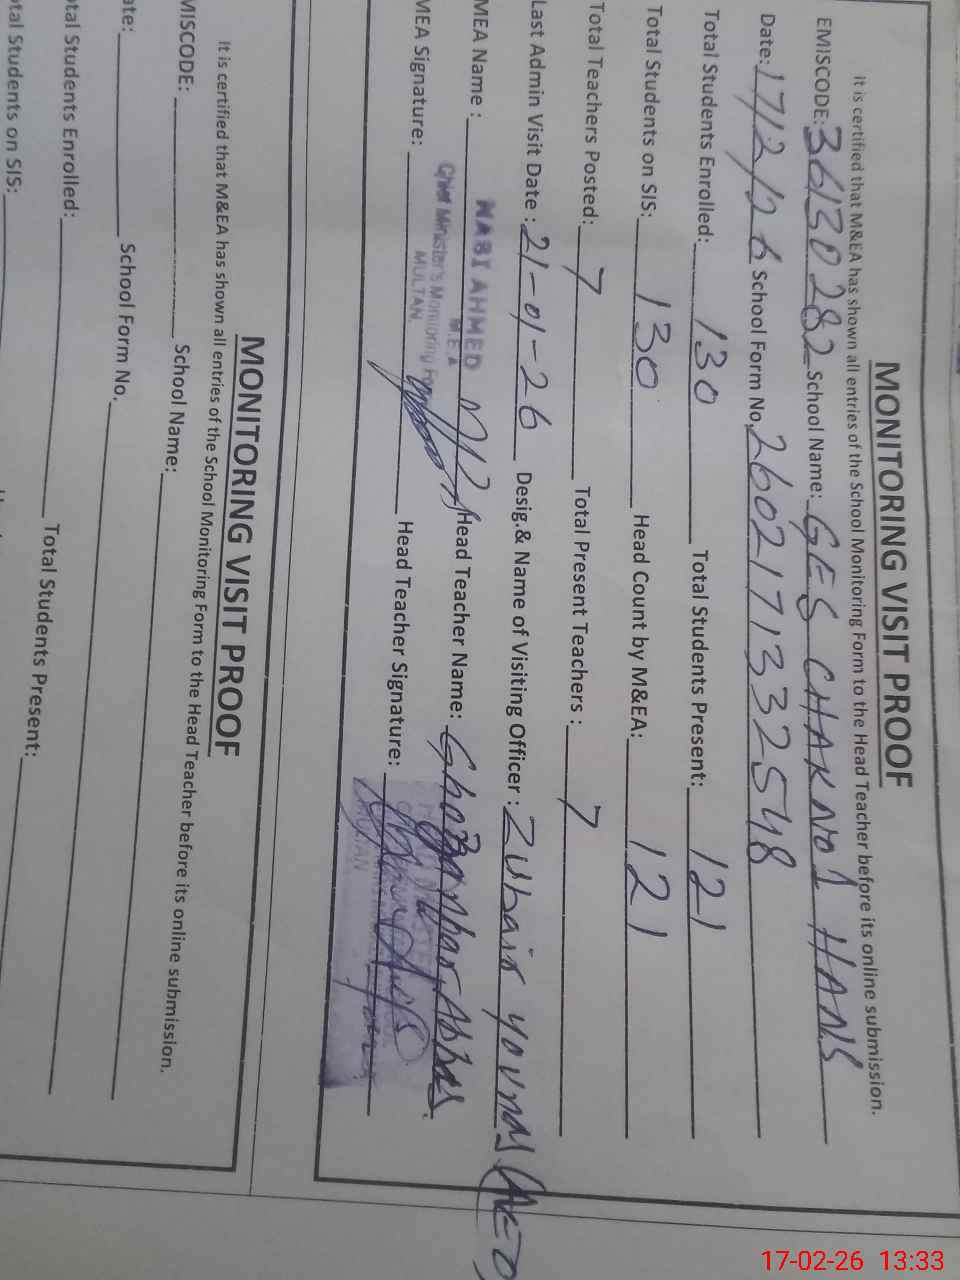 MONITORING VISIT PROOF
It is certified that M&EA has shown all entries of the School Monitoring Form to the Head Teacher before its online submission.
EMISCODE: 36130282 School Name: GES CHAK NO 1 HANS
Date: 17/2/26 School Form No. 2602171332548
Total Students Enrolled: 130 Total Students Present: 121
Total Students on SIS: 130 Head Count by M&EA: 121
Total Teachers Posted: 7 Total Present Teachers : 7
Last Admin Visit Date : 21-01-26 Desig.& Name of Visiting Officer : Zubair younas (AEO)
MEA Name : NABI AHMED Head Teacher Name: Abbas
M.E.A
Chief Minister's Monitoring Force
MULTAN.
MEA Signature: Head Teacher Signature:
MONITORING VISIT PROOF
It is certified that M&EA has shown all entries of the School Monitoring Form to the Head Teacher before its online submission.
MISCODE: School Name:
ate: School Form No.
otal Students Enrolled: Total Students Present:
otal Students on SIS:
17-02-26 13:33